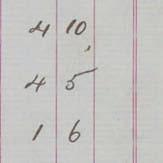 4 10
4 5
1 6